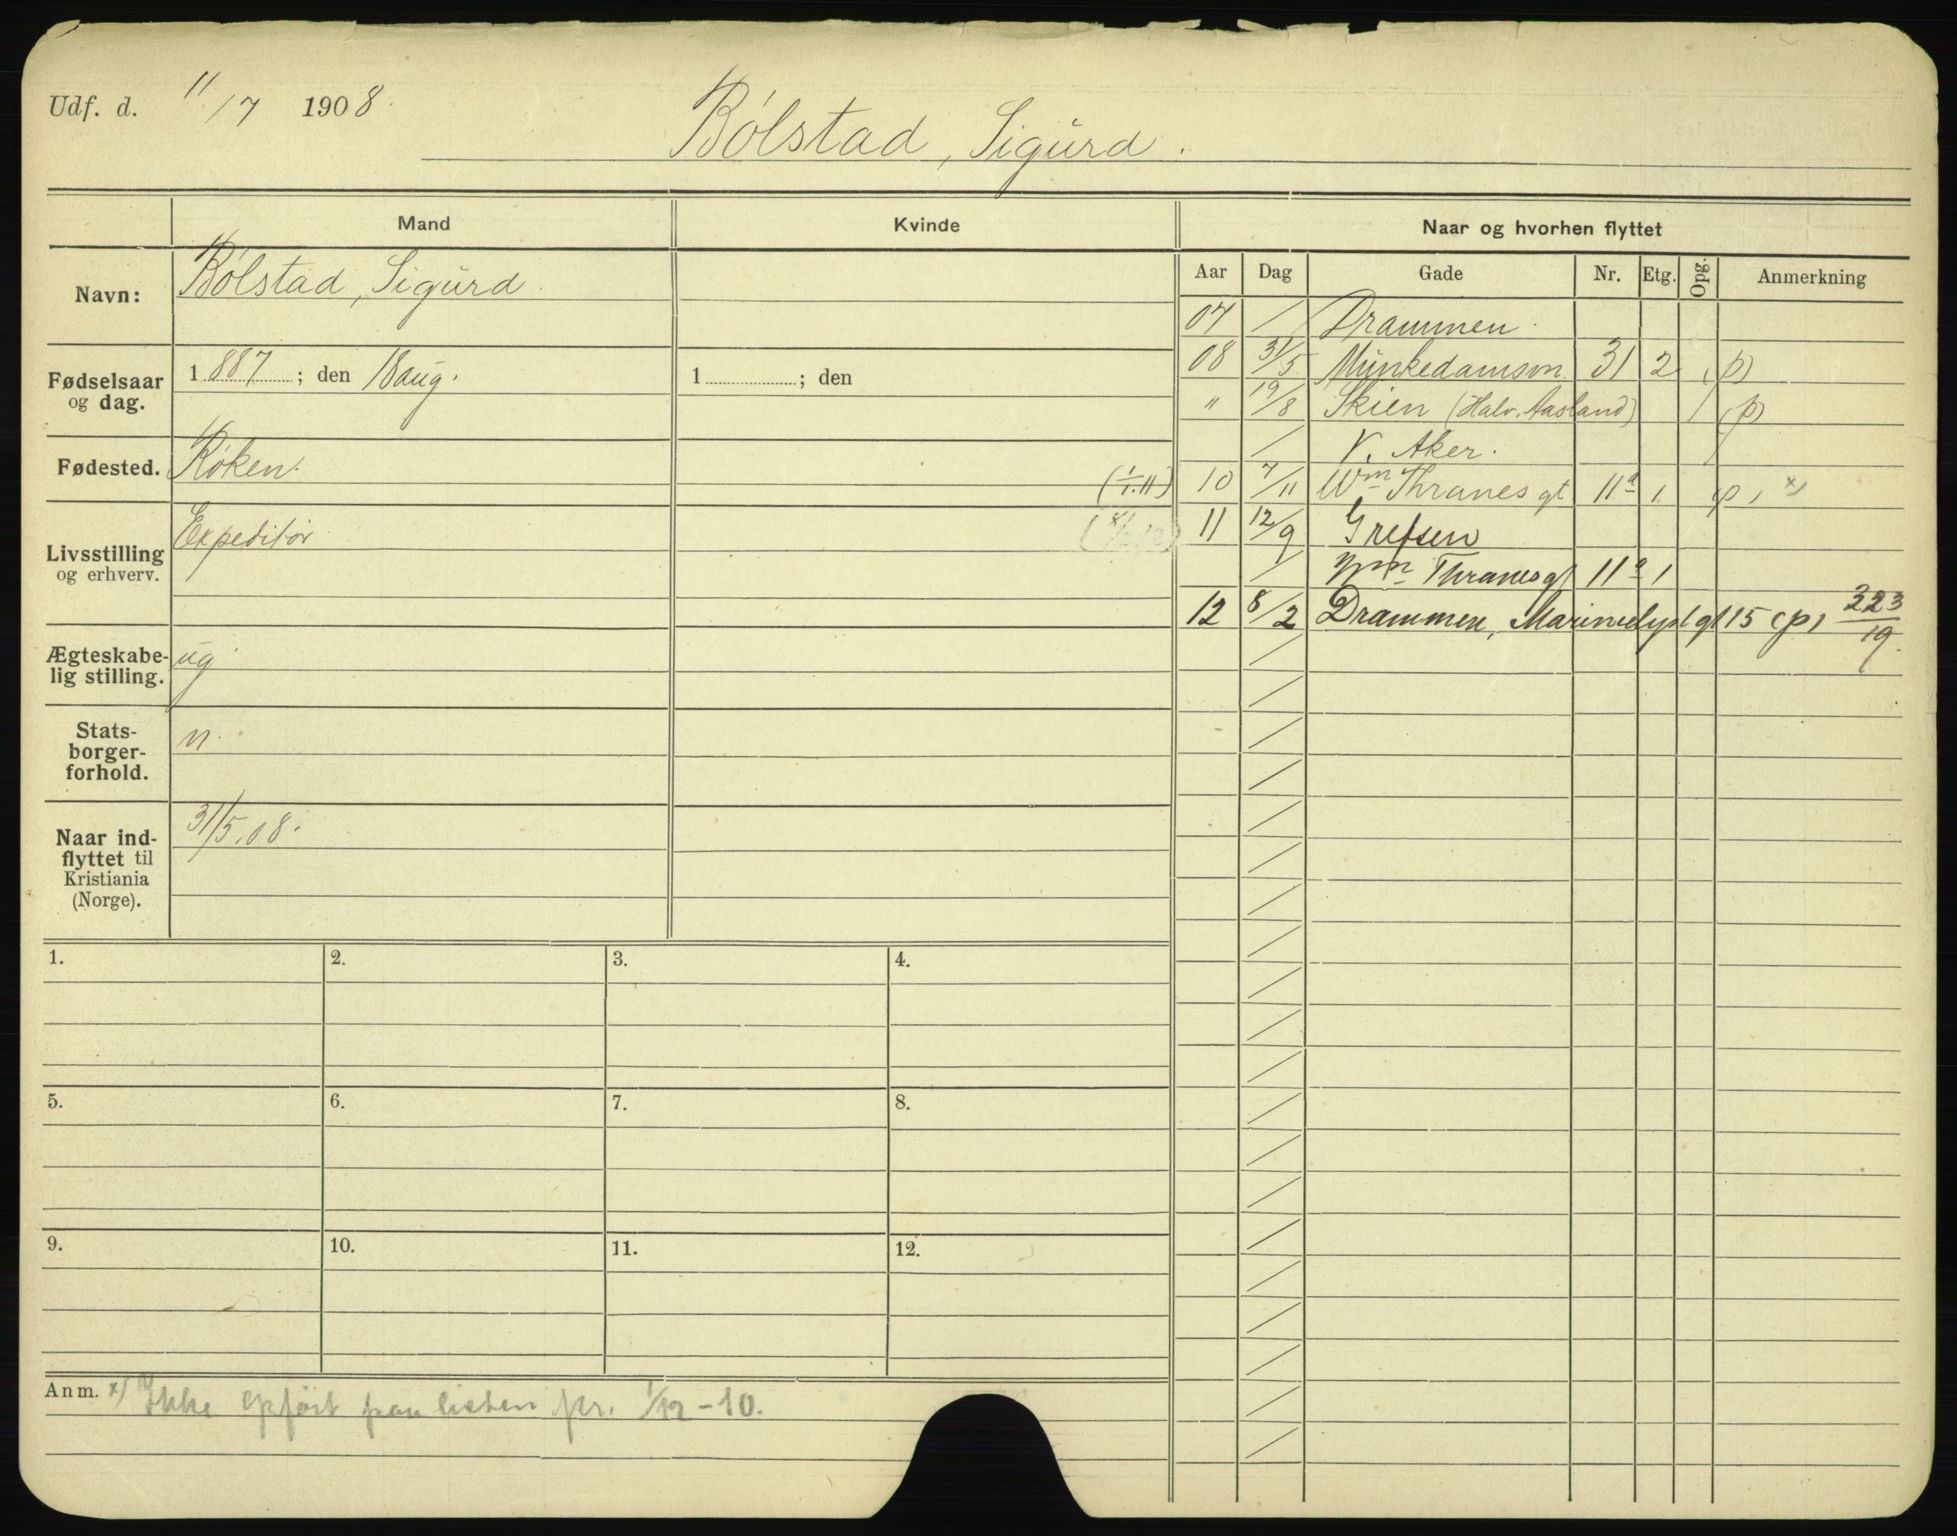 Udf. d. 11/7 1908.
Bölstad, Sigurd.
Mand Kvinde Naar og hvorhen flyttet
Aar Dag Gade Nr. Etg. Opg. Anmerkning
Navn: Bölstad, Sigurd.
07 / Drammen.
08 31/5 Munkedamsvn. 31 2 (p)
Fødselsaar og dag. 1887; den 18 aug. 1 ; den
" 19/8 Skien (Halv. Aasland) (p)
/ V. Aker.
Fødested. Röken.
(1/1.11) 10 7/11 Wm Thranes gt 11a 1 (p) x)
11 12/9 Grefsen
Livsstilling og erhverv. Expeditör
/ Wm Thranesgt 11a 1
12 8/2 Drammen, Marinelystgt 15 (p) 223/19.
Ægteskabe-
lig stilling. ug.
Stats-
borger-
forhold. n.
Naar ind-
flyttet til
Kristiania
(Norge). 31/5.08.
1. 2. 3. 4.
5. 6. 7. 8.
9. 10. 11. 12.
Anm. x) Ikke opført paa listen pr. 1/12-10.